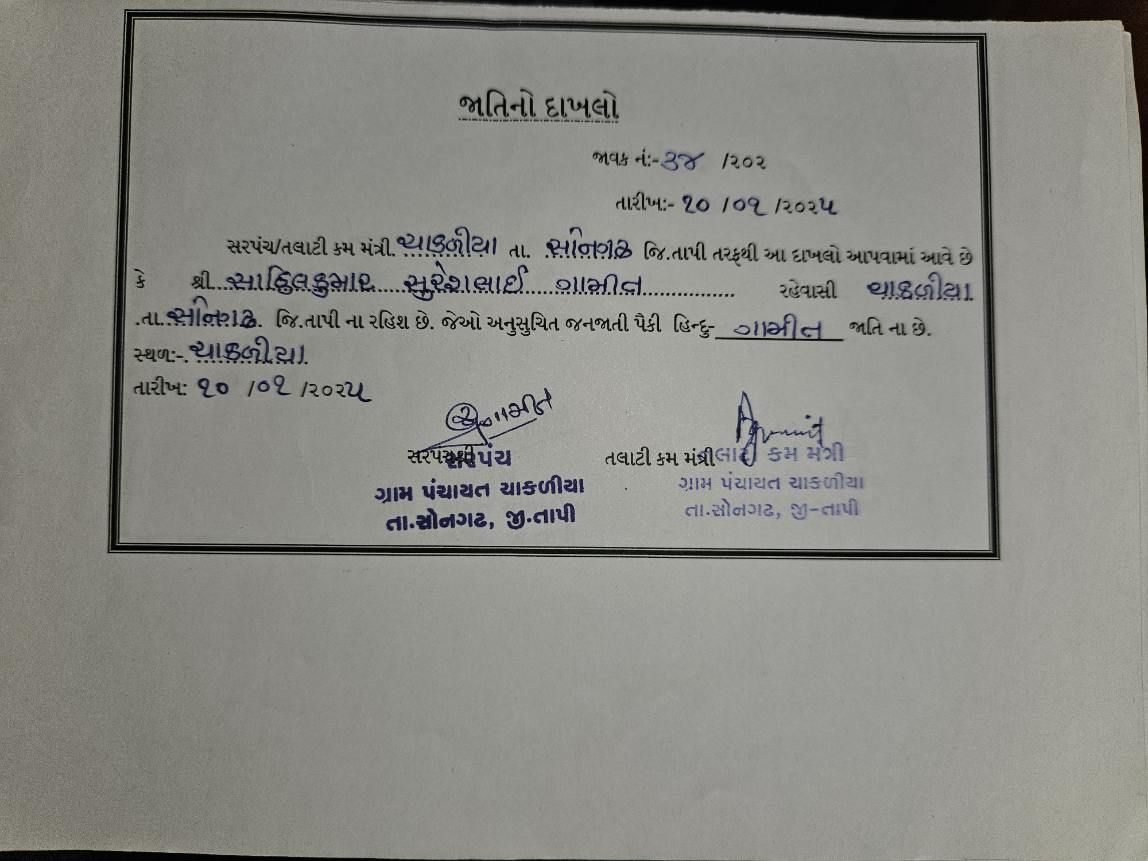 જાતિનો દાખલો
જાવક નં:- ૩૪ /૨૦૨
તારીખ:- ૧૦ /૦૧ /૨૦૨૫
સરપંચ/તલાટી કમ મંત્રી. ચાકળીયા તા. સોનગઢ જિ.તાપી તરફથી આ દાખલો આપવામાં આવે છે
કે શ્રી સાહિલકુમાર સુરેશભાઈ ગામીત રહેવાસી ચાકળીયા
.તા. સોનગઢ. જિ.તાપી ના રહિશ છે. જેઓ અનુસુચિત જનજાતી પૈકી હિન્દુ- ગામીત જાતિ ના છે.
સ્થળ:- ચાકળીયા
તારીખ: ૧૦ /૦૧ /૨૦૨૫
સરપંચશ્રી સરપંચ તલાટી કમ મંત્રી તલાટી કમ મંત્રી
ગ્રામ પંચાયત ચાકળીયા ગ્રામ પંચાયત ચાકળીયા
તા.સોનગઢ, જી.તાપી તા.સોનગઢ, જી-તાપી